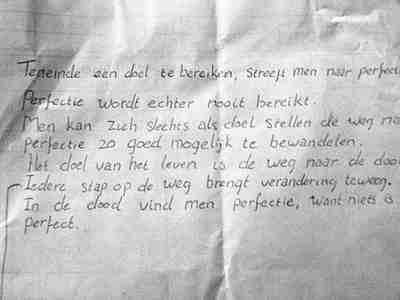 Teneinde een doel te bereiken, streeft men naar perfect
Perfectie wordt echter nooit bereikt.
Men kan zich slechts als doel stellen de weg na
perfectie zo goed mogelijk te bewandelen.
Het doel van het leven is de weg naar de doo
Iedere stap op de weg brengt verandering teweeg.
In de dood vind men perfectie, want niets is
perfect.